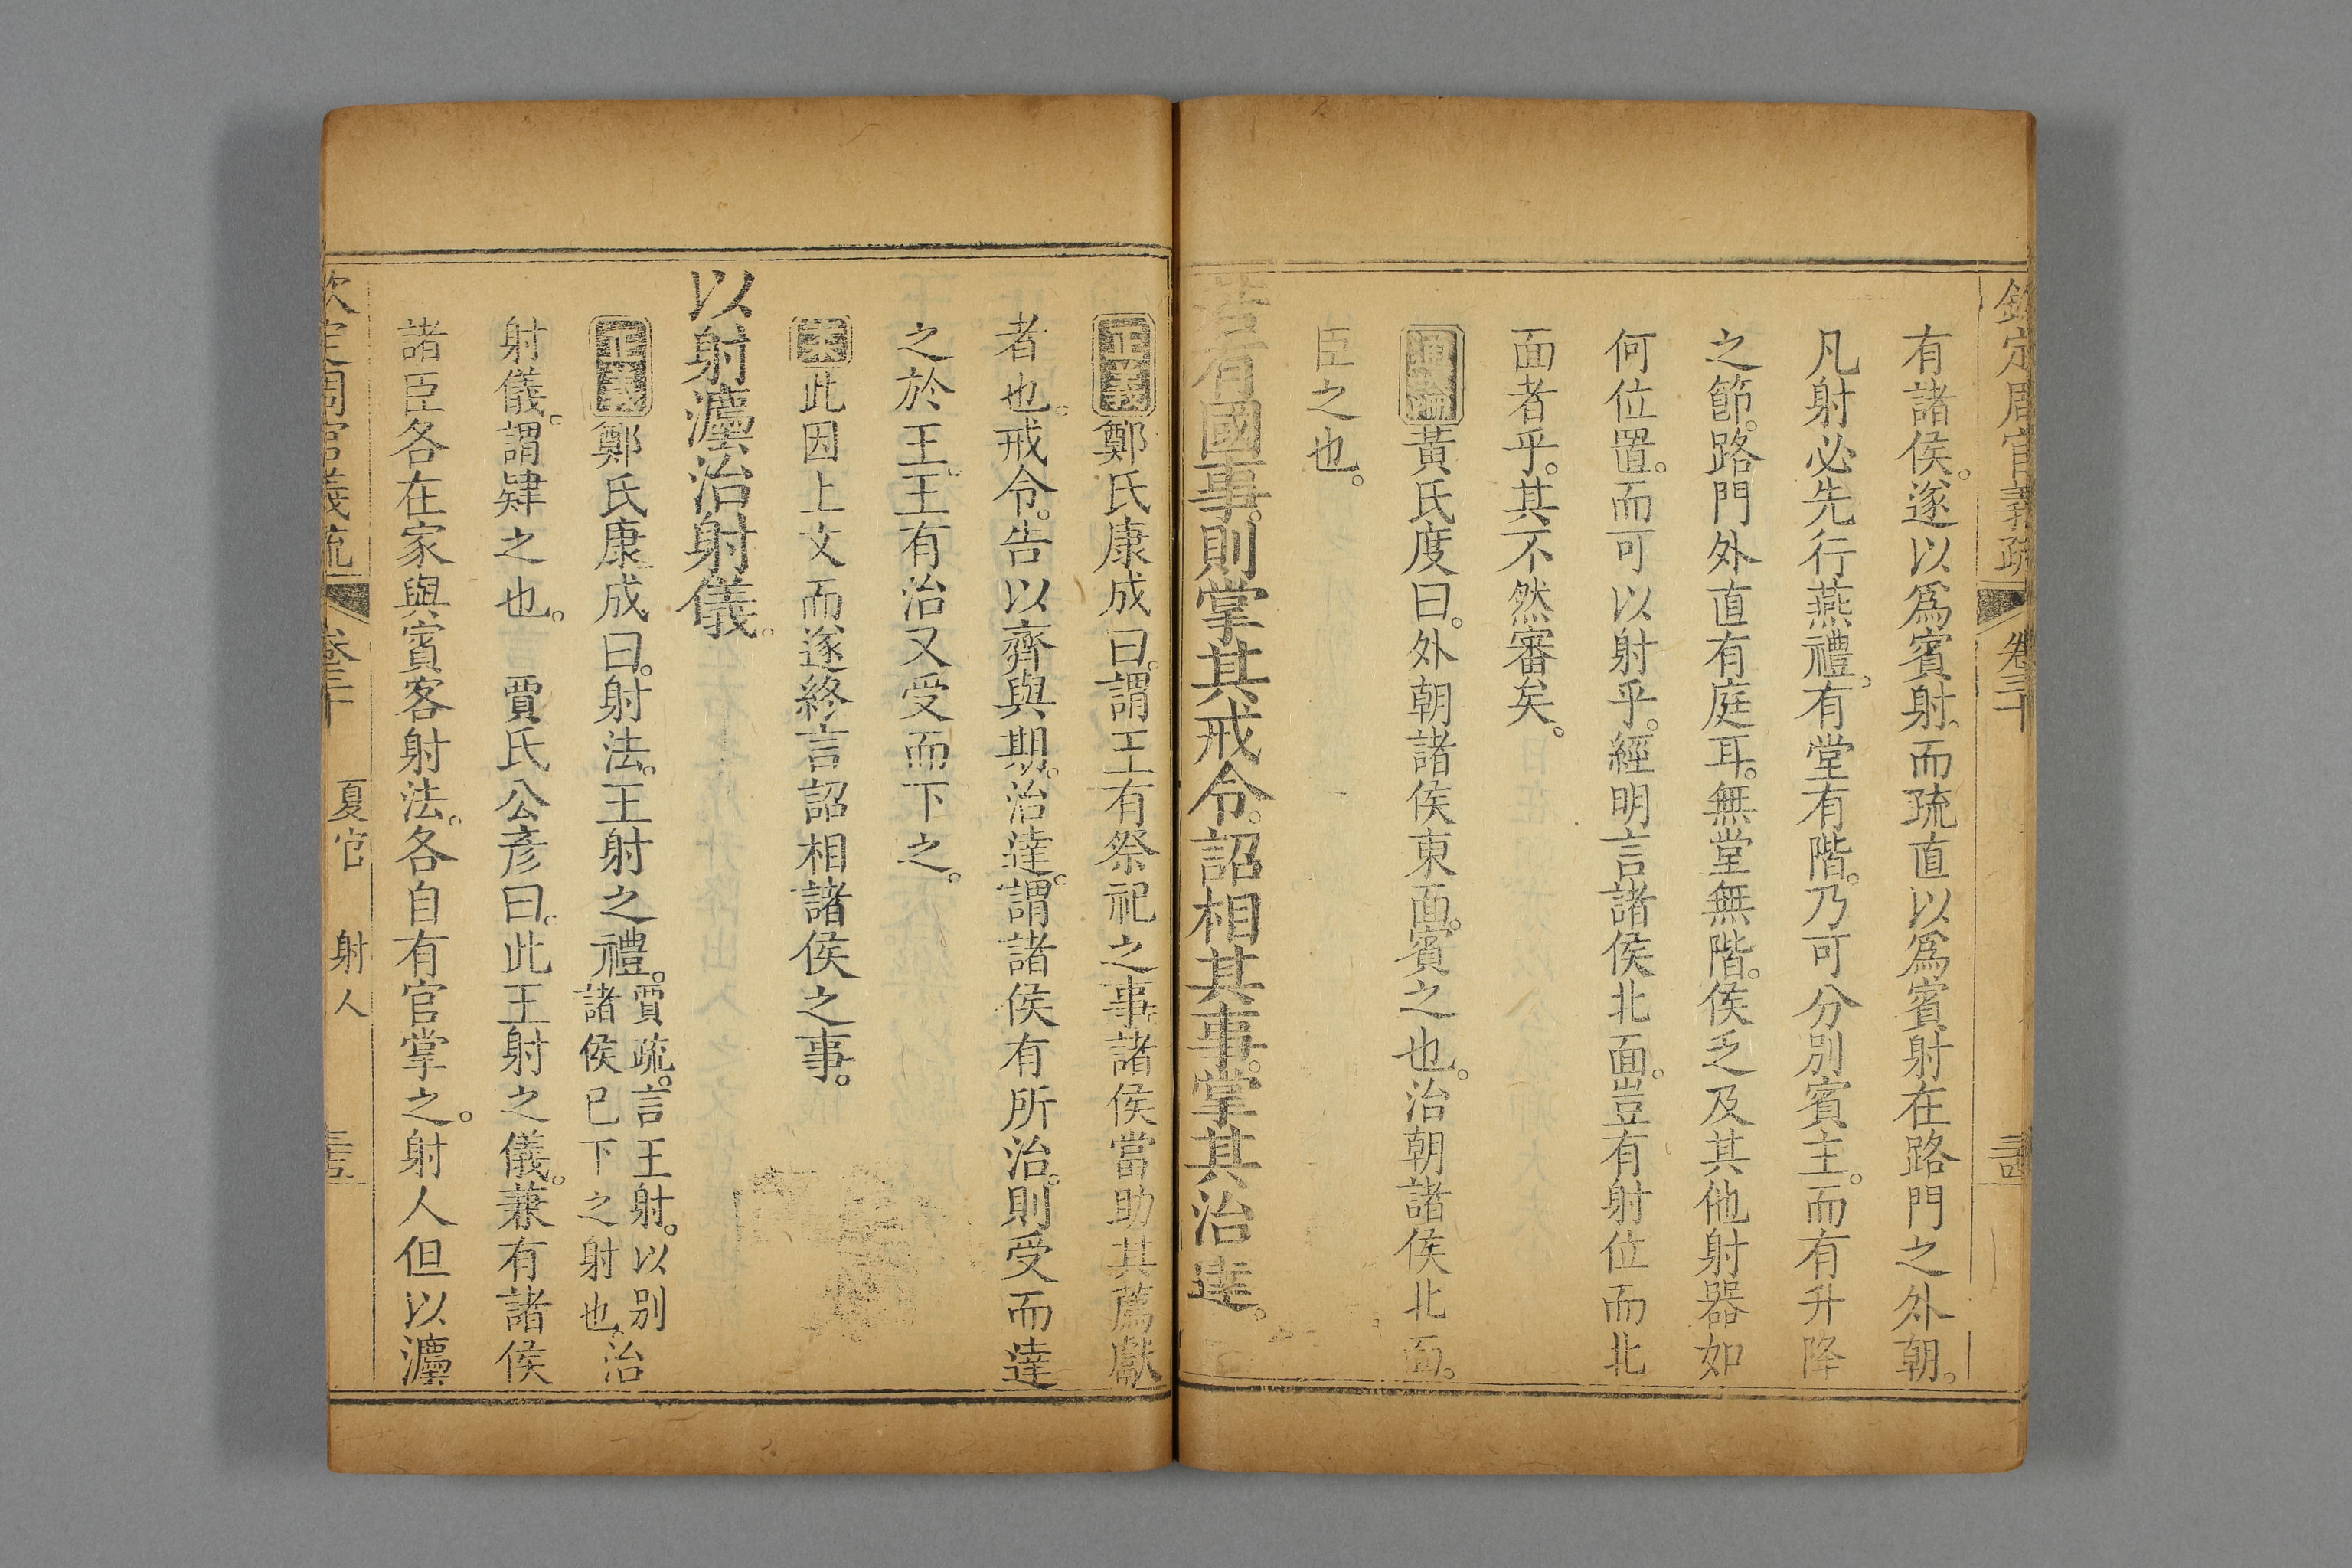 欽定周官義疏 卷三十
有諸侯。遂以爲賓射。而疏直以爲賓射在路門之外朝。
凡射必先行燕禮。有堂有階。乃可分別賓主。而有升降
之節。路門外直有庭耳。無堂無階。侯乏及其他射器如
何位置。而可以射乎。經明言諸侯北面。豈有射位而北
面者乎。其不然審矣。
通論黃氏度曰。外朝諸侯東面。賓之也。治朝諸侯北面。
臣之也。
若有國事。則掌其戒令。詔相其事。掌其治達。
正義鄭氏康成曰。謂王有祭祀之事。諸侯當助其薦獻
者也。戒令。告以齊與期。治達。謂諸侯有所治。則受而達
之於王。王有治又受而下之。
此因上文而遂終言詔相諸侯之事。
以射灋治射儀。
正義鄭氏康成曰。射法。王射之禮。賈疏。言王射。以別
諸侯已下之射也。治
射儀。謂肄之也。 賈氏公彥曰。此王射之儀。兼有諸侯
諸臣各在家與賓客射法。各自有官掌之。射人但以灋
欽定周官義疏 卷三十 夏官 射人